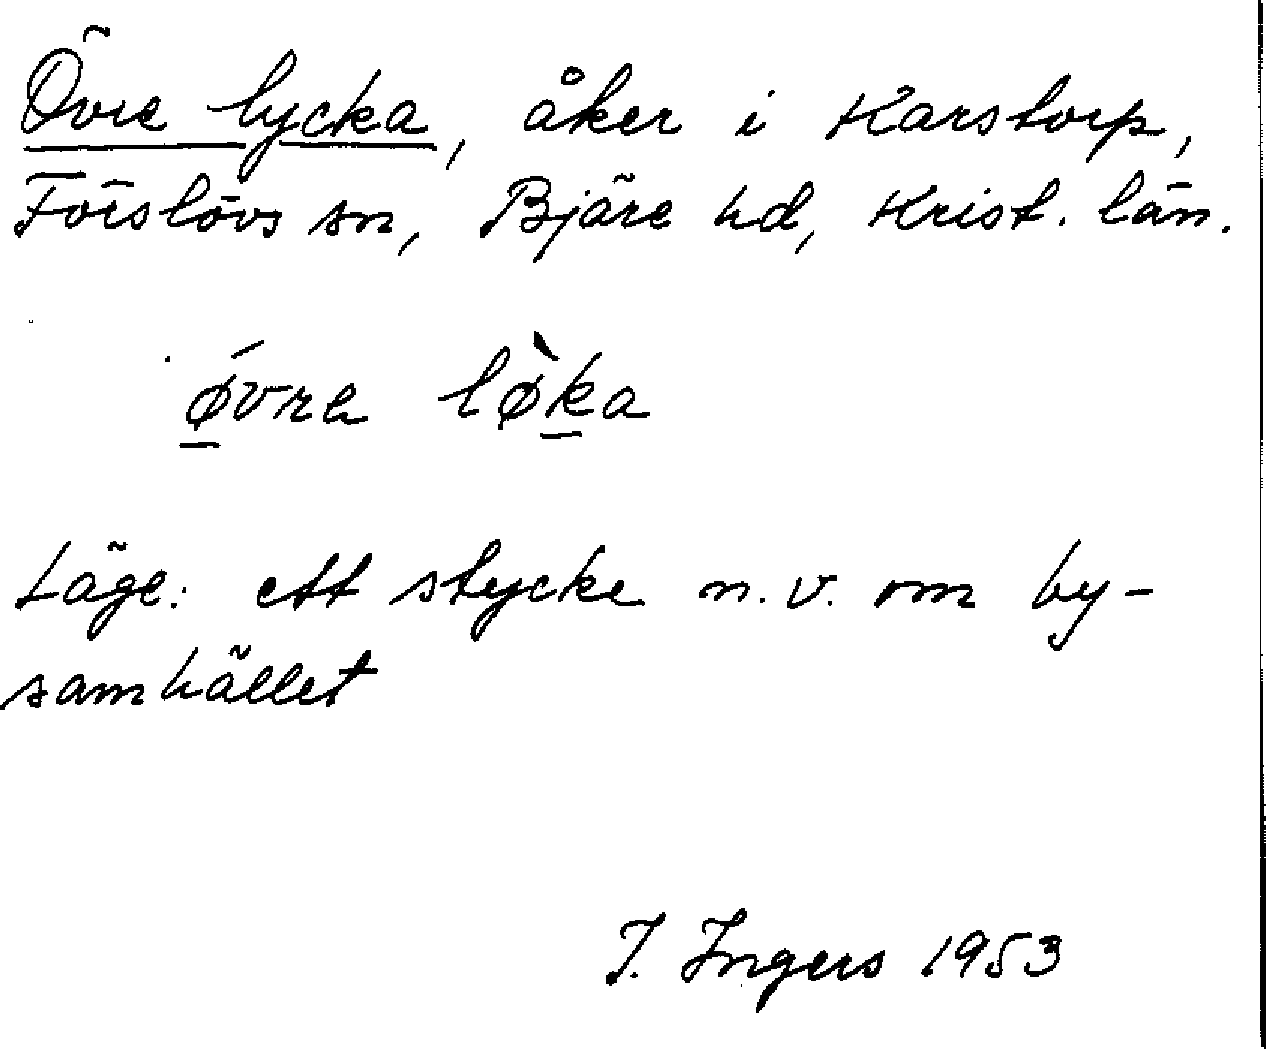 Övre lycka, åker i Karstorp,
Förslövs sn, Bjäre hd, Krist. län.
ǿvrə lø̀ka
Läge: ett stycke n.v. om by-
samhället
I. Ingers 1953